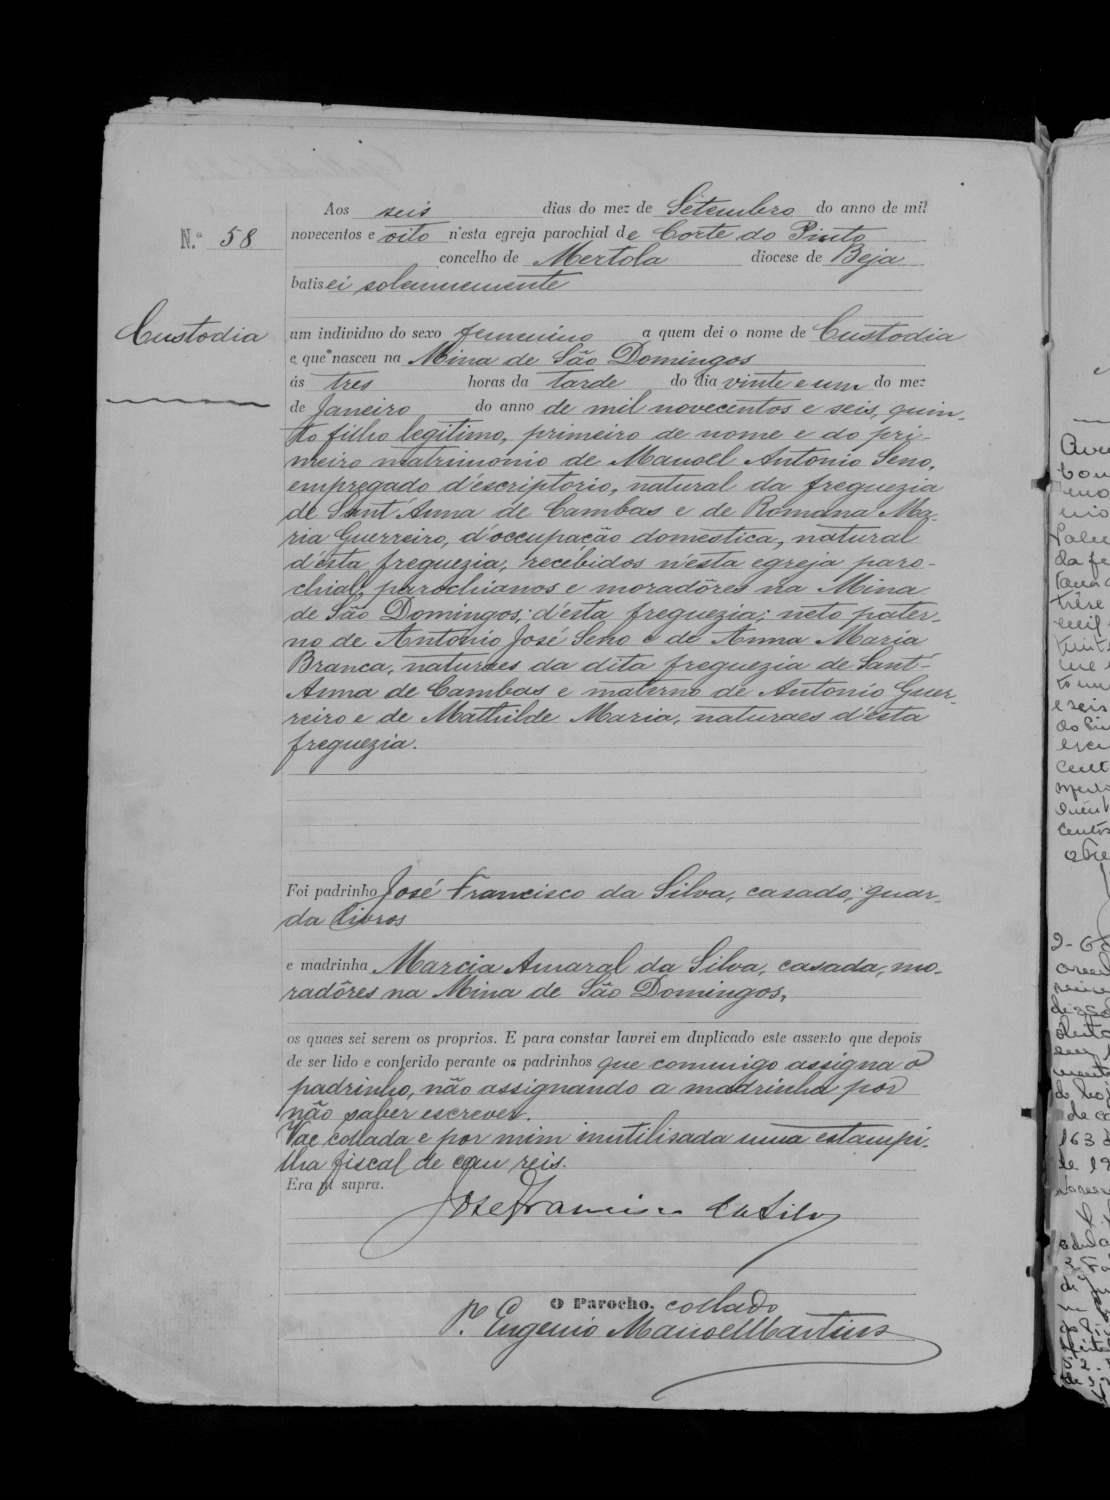 Aos seis dias do mez de Setembro do anno de mil
N.º 58
novecentos e oito n'esta egreja parochial de Corte do Pinto
concelho de Mertola diocese de Beja
batisei solemnemente
Custodia
um individuo do sexo femenino a quem dei o nome de Custodia
e que nasceu na Mina de São Domingos
ás tres horas da tarde do dia vinte e um do mez
de Janeiro do anno de mil novecentos e seis, quin-
to filho legitimo, primeiro de nome e do pri-
meiro matrimonio de Manoel Antonio Seno,
empregado d'escriptorio, natural da freguezia
de Sant'Anna de Cambas e de Romana Ma-
ria Guerreiro, d'occupação domestica, natural
d'esta freguezia, recebidos n'esta egreja paro-
chial, parochianos e moradôres na Mina
de São Domingos; d'esta freguezia; neto pater-
no de Antonio José Seno e de Anna Maria
Branca, naturaes da dita freguezia de Sant'-
Anna de Cambas e materno de Antonio Guer-
reiro e de Mathilde Maria, naturaes d'esta
freguezia.
Foi padrinho José Francisco da Silva, casado, guar-
da livros
e madrinha Marcia Amaral da Silva, casada, mo-
radôres na Mina de São Domingos,
os quaes sei serem os proprios. E para constar lavrei em duplicado este assento que depois
de ser lido e conferido perante os padrinhos que commigo assigna o
padrinho, não assignando a madrinha por
não saber escrever.
Vae collada e por mim inutilisada uma estampi-
lha fiscal de cem reis.
Era ut supra.
José Francisco da Silva
O Parocho, collado
P.e Eugenio Manoel Martins